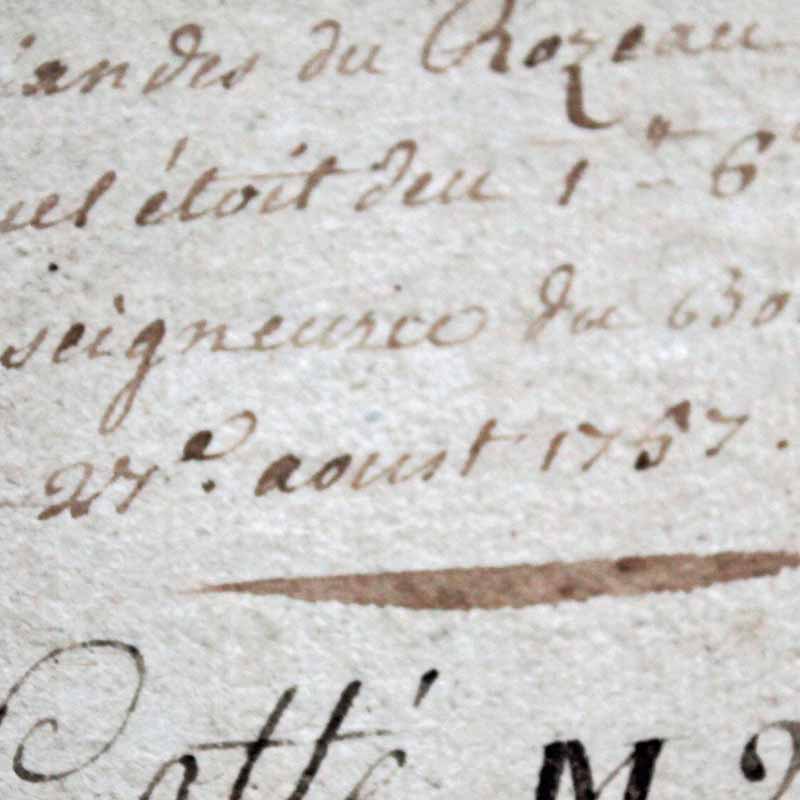 landes du Rozeau
uel étoit deu 1
seigneurie du
27e. aoust 1757.
Cotté M 2